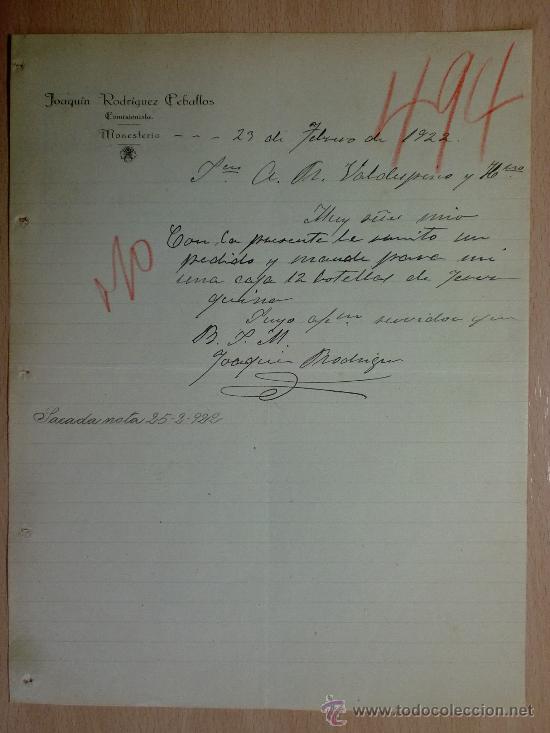 Joaquín Rodríguez Ceballos
Comisionista
Monesterio - - - 23 de Febrero de 1922
494
Sres A. R. Valdespino y Hno
Muy señor mio
Con la presente le remito un
pedido y mande para mi
una caja 12 botellas de Jerez
quina
Suyo afmo servidor q m
B. S. M.
Joaquin Rodriguez
NO
Sacada nota 25-2-922
todocoleccion
www.todocoleccion.net